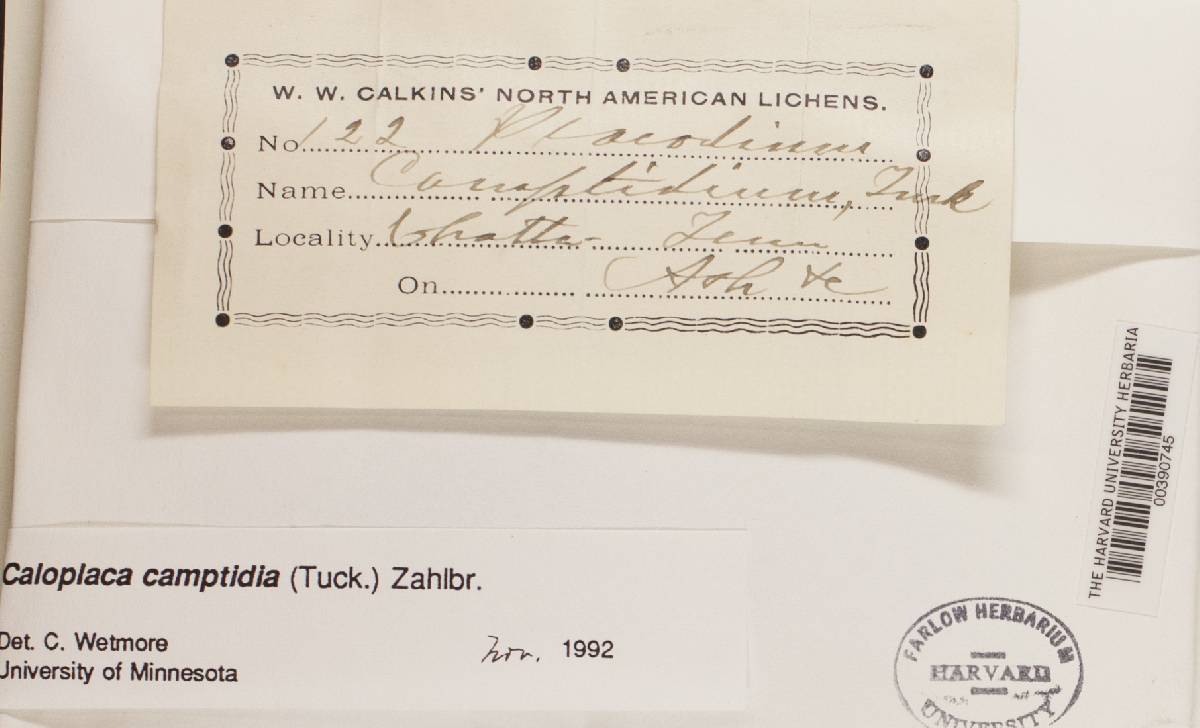 W. W. CALKINS' NORTH AMERICAN LICHENS.
No. 122 Placodium
Name Camptidium, Tuck
Locality Chatta- Tenn
On Ash &c
THE HARVARD UNIVERSITY HERBARIA
00390745
Caloplaca camptidia (Tuck.) Zahlbr.
Det. C. Wetmore
Nov. 1992
University of Minnesota
FARLOW HERBARIUM
HARVARD
UNIVERSITY